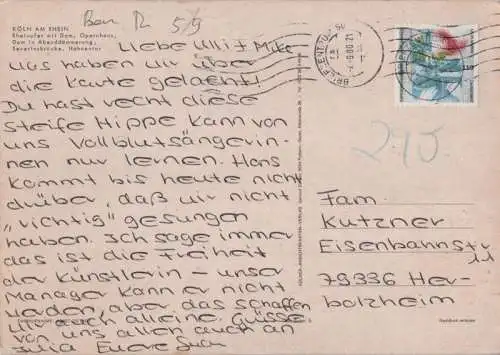 Bon R 5/9
KÖLN AM RHEIN
Rheinufer mit Dom, Opernhaus,
Dom in Abenddämmerung,
Severinsbrücke, Hahnentor
Liebe Ulli + Mike
was haben wir über
die Karte gelacht!
Du hast recht diese
steife Hippe kann von
uns Vollblutsängerin-
nen nur lernen. Hans
kommt bis heute nicht
drüber, daß wir nicht
„richtig" gesungen
haben. Ich sage immer
das ist die Freiheit
der Künstlerin - unser
Manager kann er nicht
werden, aber das schaffen
wir auch alleine. Grüsse
von uns allen auch an
Julia Eure
BRIEFZENTRUM 50
110
240.
Fam
Kutzner
Eisenbahnstr
11
79336 Her-
bolzheim